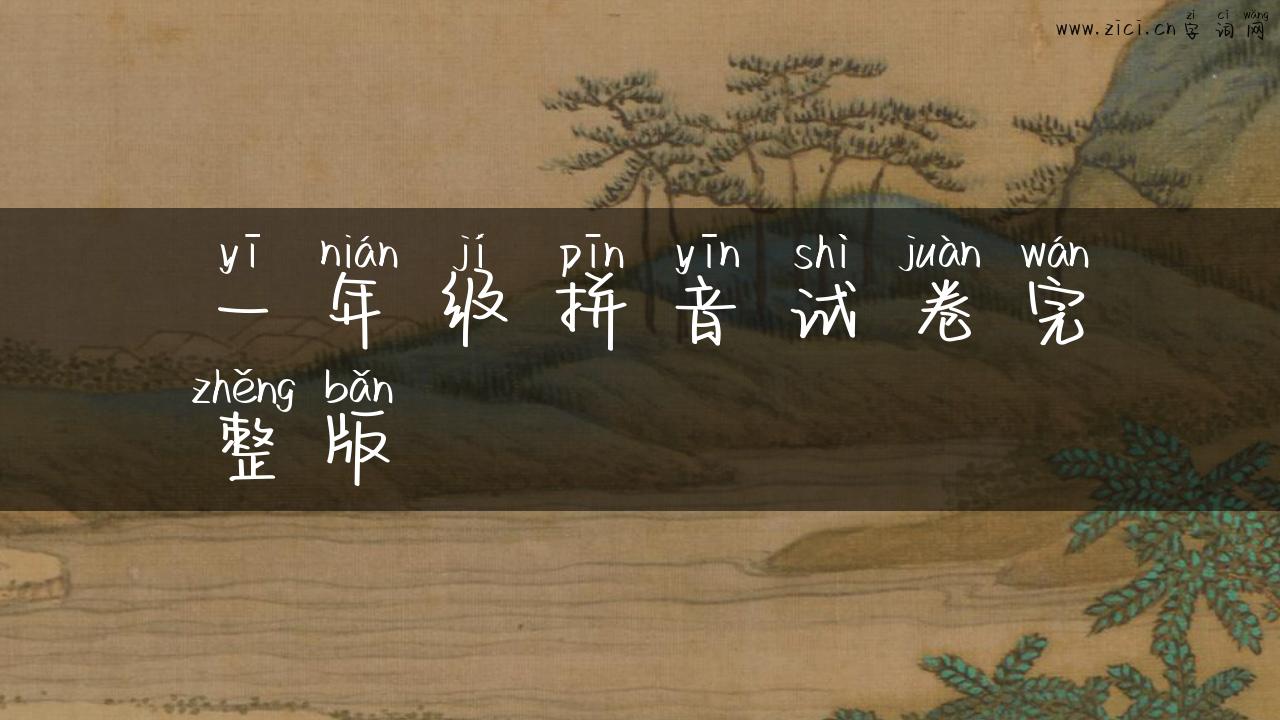 zì cí wǎng
www.zici.cn 字词网
yī nián jí pīn yīn shì juàn wán
一年级拼音试卷完
zhěng bǎn
整版